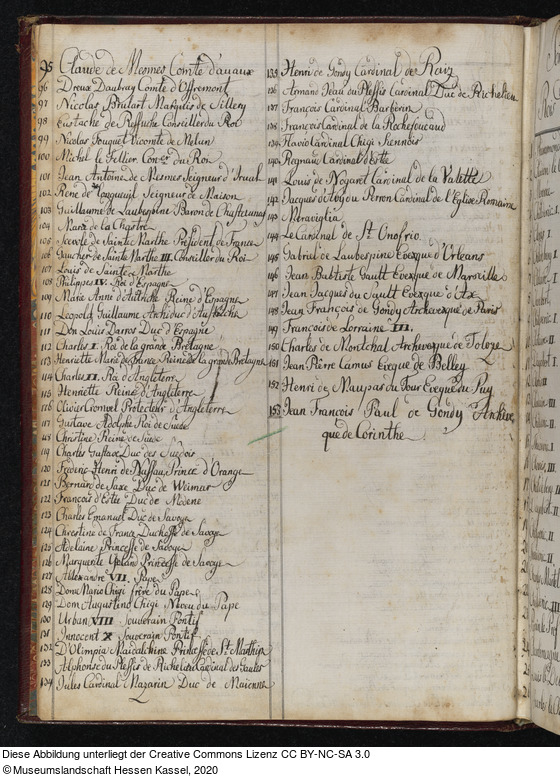 95 Claude de Mesmes Comte d'avaux
96 Dreux Daubray Comte d'Offremont
97 Nicolas Brulart Marquis de Sillery
98 Eustache de Reffuche Conseiller du Roi
99 Nicolas Fouquet Vicomte de Melun
100 Michel le Tellier Con. du Roi
101 Jean Antoine de Mesmes Seigneur d'Irual
102 René de Longueuil Seigneur de Maison
103 Guillaume de Laubespine Baron de Chasteaunay
104 Marie de la Chastre
105 Scevole de Sainte Marthe President de France
106 Gaucher de Sainte Marthe III. Conseiller du Roi
107 Louis de Sainte Marthe
108 Philippes IV. Roi d'Espagne
109 Marie Anne d'Autriche Reine d'Espagne
110 Leopold Guillaume Archiduc d'Autriche
111 Don Louis Darros Duc d'Espagne
112 Charles I. Roi de la grande Bretagne
113 Henriette Marie de France Reine de la grande Bretagne
114 Charles II. Roi d'Angleterre
115 Henriette Reine d'Angleterre
116 Olivier Cromvel Protecteur d'Angleterre
117 Gustave Adolphe Roi de Suede
118 Christine Reine de Suede
119 Charles Gustave Duc des Suedois
120 Frederic Henri de Nassau Prince d'Orange
121 Bernard de Saxe Duc de Weimar
122 Francois d'Este Duc de Modene
123 Charles Emanuel Duc de Savoye
124 Chrestine de France Duchesse de Savoye
125 Adelaine Princesse de Savoye
126 Marguerite Yoland Princesse de Savoye
127 Allexandre VII. Pape
128 Dom Mario Chigi frere du Pape
129 Dom Augustino Chigi Nveu du Pape
130 Urban VIII Souverain Pontif
131 Innocent X Souverain Pontif
132 D'Olimpia Maidalchine Princesse de St. Marthin
133 Alphonse du Plessis de Richelieu Cardinal des Gaules
134 Jules Cardinal Mazarin Duc de Maienne
135 Henri de Gondy Cardinal de Raiz
136 Armand Jean du Plessis Cardinal Duc de Richelieu
137 François Cardinal Barberin
138 François Cardinal de la Rochefoucaud
139 Flavio Cardinal Chigi Siennois
140 Regnaut Cardinal d'Este
141 Louis de Nogaret Cardinal de la Valette
142 Jacques du Perron Cardinal de l'Eglise Romaine
143 Meraviglia
144 Le Cardinal de St. Onofrio
145 Gabriel de Laubespine Evexque d'Orleans
146 Jean Batiste Gault Evexque de Marseille
147 Jean Jacques du Sault Evexque d'Ax
148 Jean François de Gondy Archevexque de Paris
149 François de Lorraine III.
150 Charles de Montchal Archevexque de Toloze
151 Jean Pierre Camus Evcque de Belley
152 Henri de Maupas du Tour Evcque du Puy
153 Jean François Paul de Gondy Archeve
que de Corinthe
Diese Abbildung unterliegt der Creative Commons Lizenz CC BY-NC-SA 3.0
©Museumslandschaft Hessen Kassel, 2020